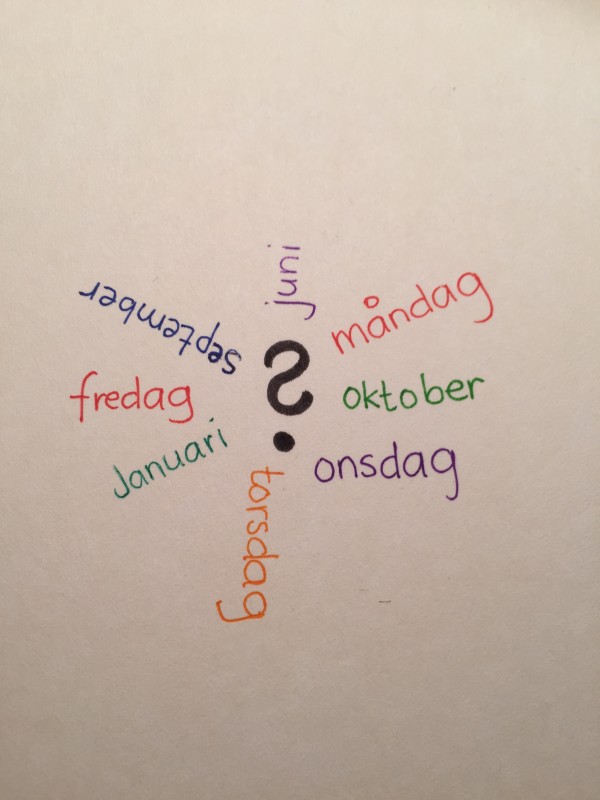 juni
måndag
september
?
fredag
oktober
Januari
onsdag
torsdag